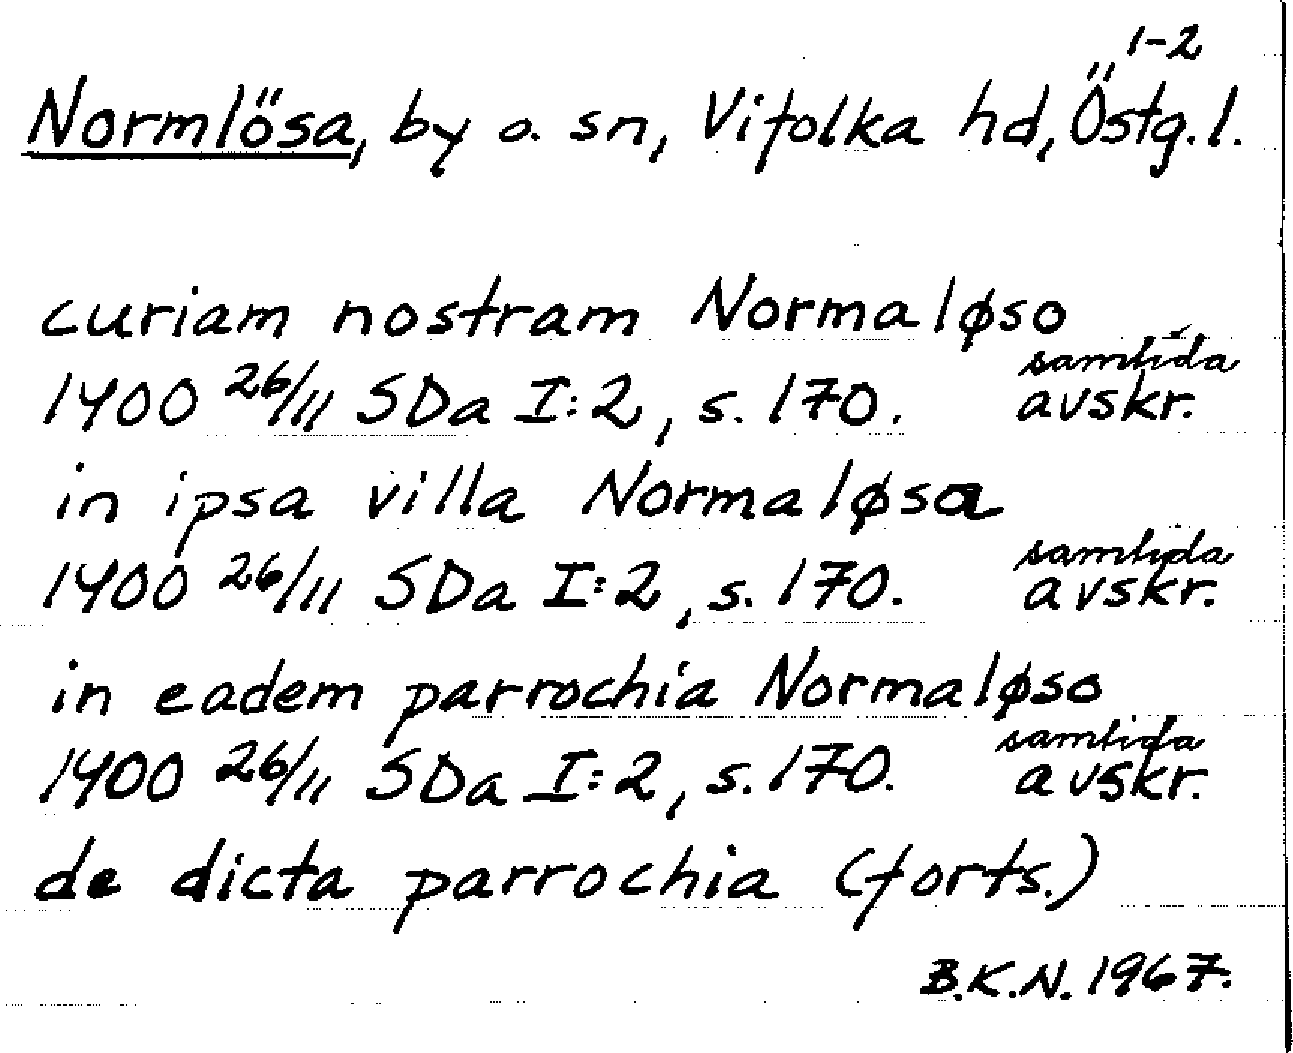 1-2
Normlösa, by o. sn, Vifolka hd, Östg.l.
curiam nostram Normaløso
1400 26/11 SDa I:2, s. 170. samtida avskr.
in ipsa villa Normaløsa
1400 26/11 SDa I:2, s. 170. samtida avskr.
in eadem parrochia Normaløso
1400 26/11 SDa I:2, s. 170. samtida avskr.
de dicta parrochia (forts.)
B.K.N. 1967.